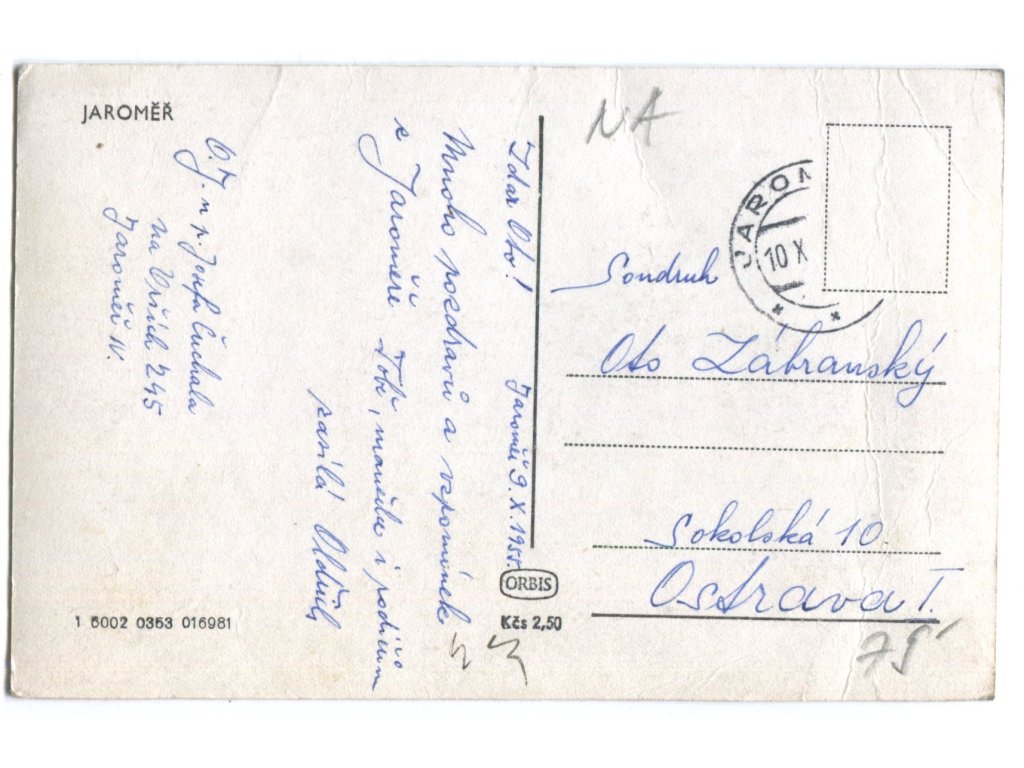 JAROMĚŘ
Zdar Oto! Jaroměř 9.X.1955.
Mnoho pozdravů a vzpomínek
z Jaroměře Tobě, manželce i rodičům
zasílá Oldřich
Josefa Čuchala
na Vrších 245
Jaroměř IV.
NA
JAROM
10 X
Soudruh
Oto Zábranský
Sokolská 10.
Ostrava I.
ORBIS
Kčs 2,50
1 6002 0353 016981